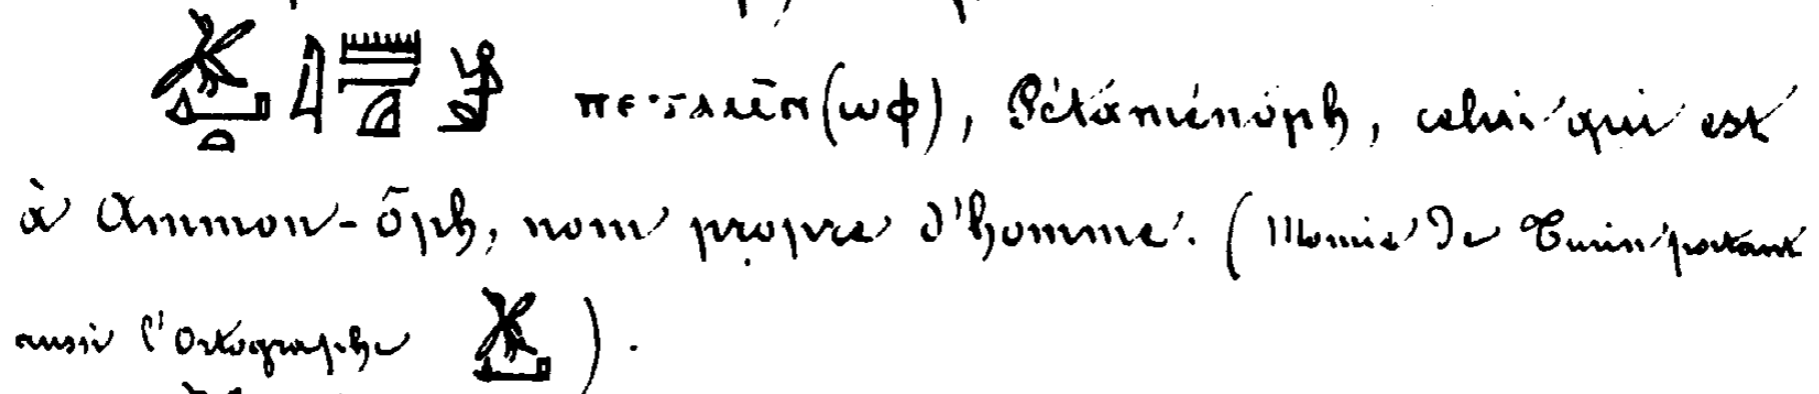 ⲡⲉⲧⲁⲙⲛ̄(ⲱⲫ), Pétaménôph, celui qui est
à Ammon-ôph, nom propre d'homme. (Momie de Turin portant
aussi l'Ortographe ).